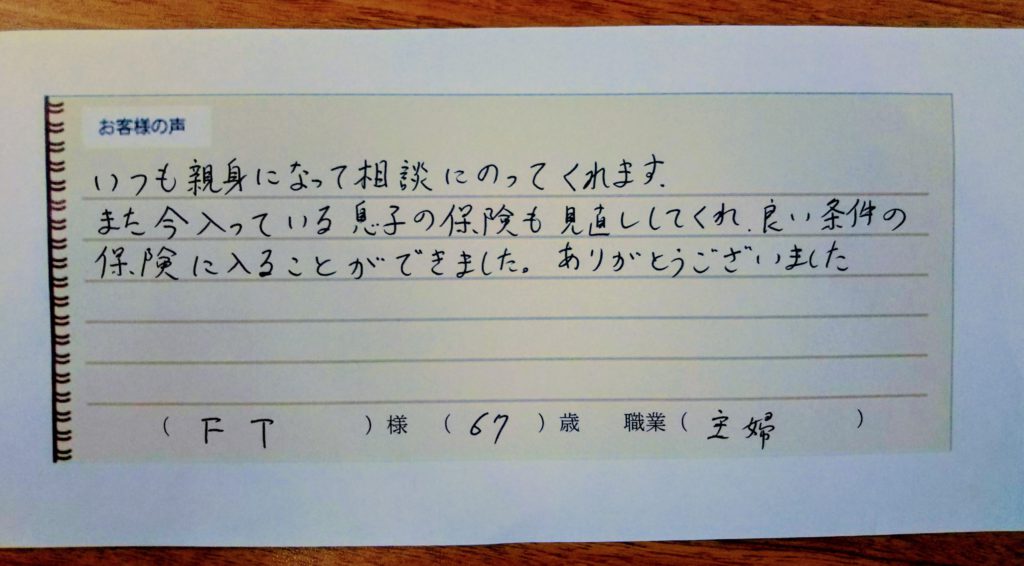 お客様の声
いつも親身になって相談にのってくれます.
また今入っている息子の保険も見直ししてくれ、良い条件の
保険に入ることができました。ありがとうございました
( F T )様 ( 67 )歳 職業( 主婦 )